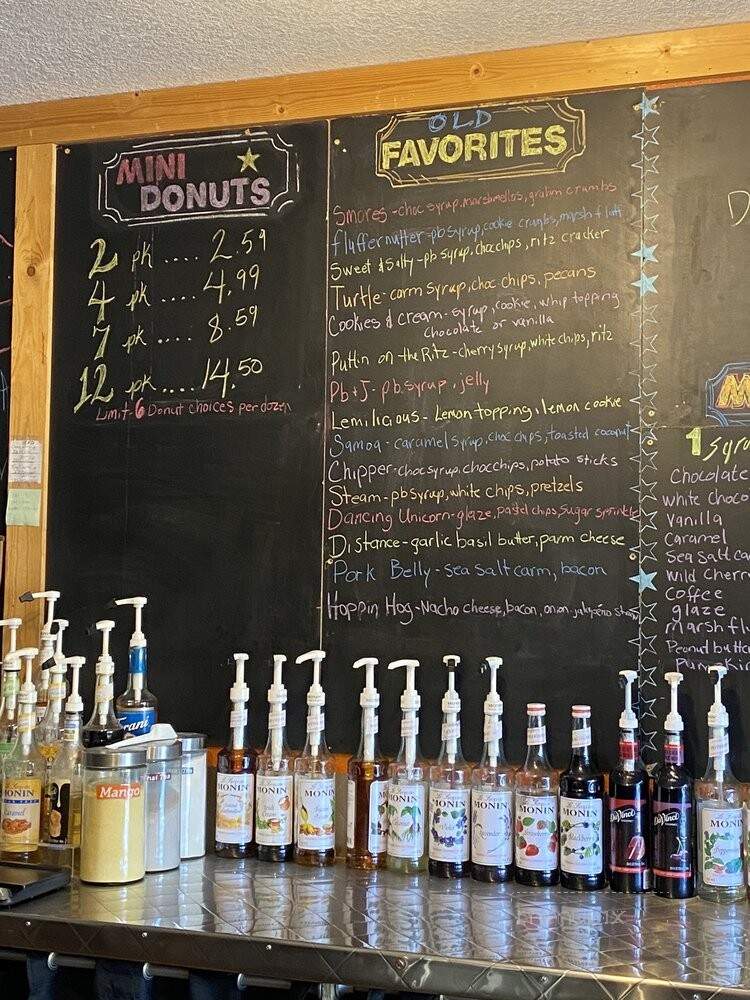 MINI
DONUTS
2 pk .... 2.59
4 pk .... 4.99
7 pk .... 8.59
12 pk .... 14.50
Limit-6 Donut choices per dozen
OLD
FAVORITES
Smores-choc syrup, marshmellos, grahm crumbs
fluffernutter-pb syrup, cookie crumbs, marsh fluff
Sweet & Salty-pb syrup, choc chips, ritz cracker
Turtle-carm syrup, choc chips, pecans
Cookies & cream-syrup, cookie, whip topping
chocolate or vanilla
Puttin on the Ritz-cherry syrup, white chips, ritz
Pb+J-pb syrup, jelly
Lemilicious-Lemon topping, lemon cookie
Samoa-caramel syrup, choc chips, toasted coconut
Chipper-choc syrup, choc chips, potato sticks
Steam-pb syrup, white chips, pretzels
Dancing Unicorn-glaze, pastel chips, sugar sprinkle
Distance-garlic basil butter, parm cheese
Pork Belly-sea salt carm, bacon
Hoppin Hog-Nacho cheese, bacon, onion, jalapeno
D
M
1 Syru
Chocolate
white choco
Vanilla
Caramel
Sea Salt ca
wild cherr
Coffee
glaze
marsh flu
Peanut butte
Pumpkin
Torani
Mango
Thai Tea
MONIN
Caramel
MONIN
MONIN
MONIN
MONIN
MONIN
MONIN
MONIN
lavender
MONIN
Strawberry
MONIN
Blackberry
DaVinci
DaVinci
MONIN